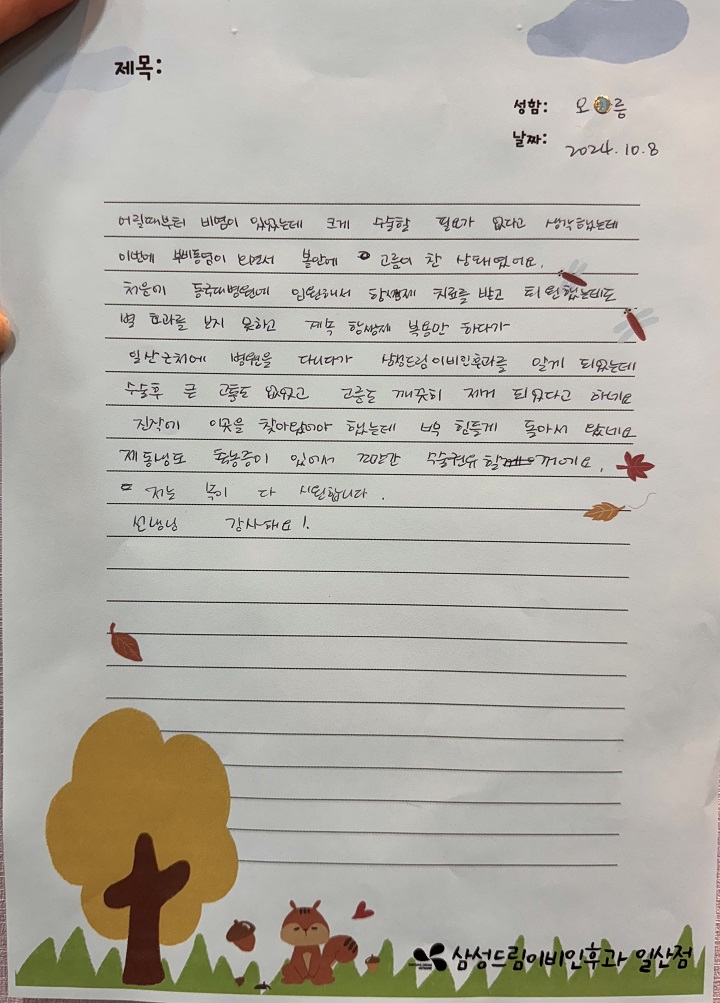 제목:
성함: 오 름
날짜: 2024.10.8
어릴때부터 비염이 있었는데 크게 수술할 필요가 없다고 생각했는데
이번에 부비동염이 되면서 볼안에 고름이 찬 상태였어요.
처음에 동국대병원에 입원해서 항생제 치료를 받고 퇴원했는데도
별 효과를 보지 못하고 계속 항생제 복용만 하다가
일산근처에 병원을 다니다가 삼성드림이비인후과를 알게 되었는데
수술후 큰 고통도 없었고 고름도 깨끗히 제거 되었다고 하네요
진작에 이곳을 찾아왔어야 했는데 너무 힘들게 돌아서 왔네요
제 동생도 축농증이 있어서 조만간 수술권유 할꺼에요.
저는 목이 다 시원합니다.
선생님 감사해요!.
삼성드림이비인후과 일산점